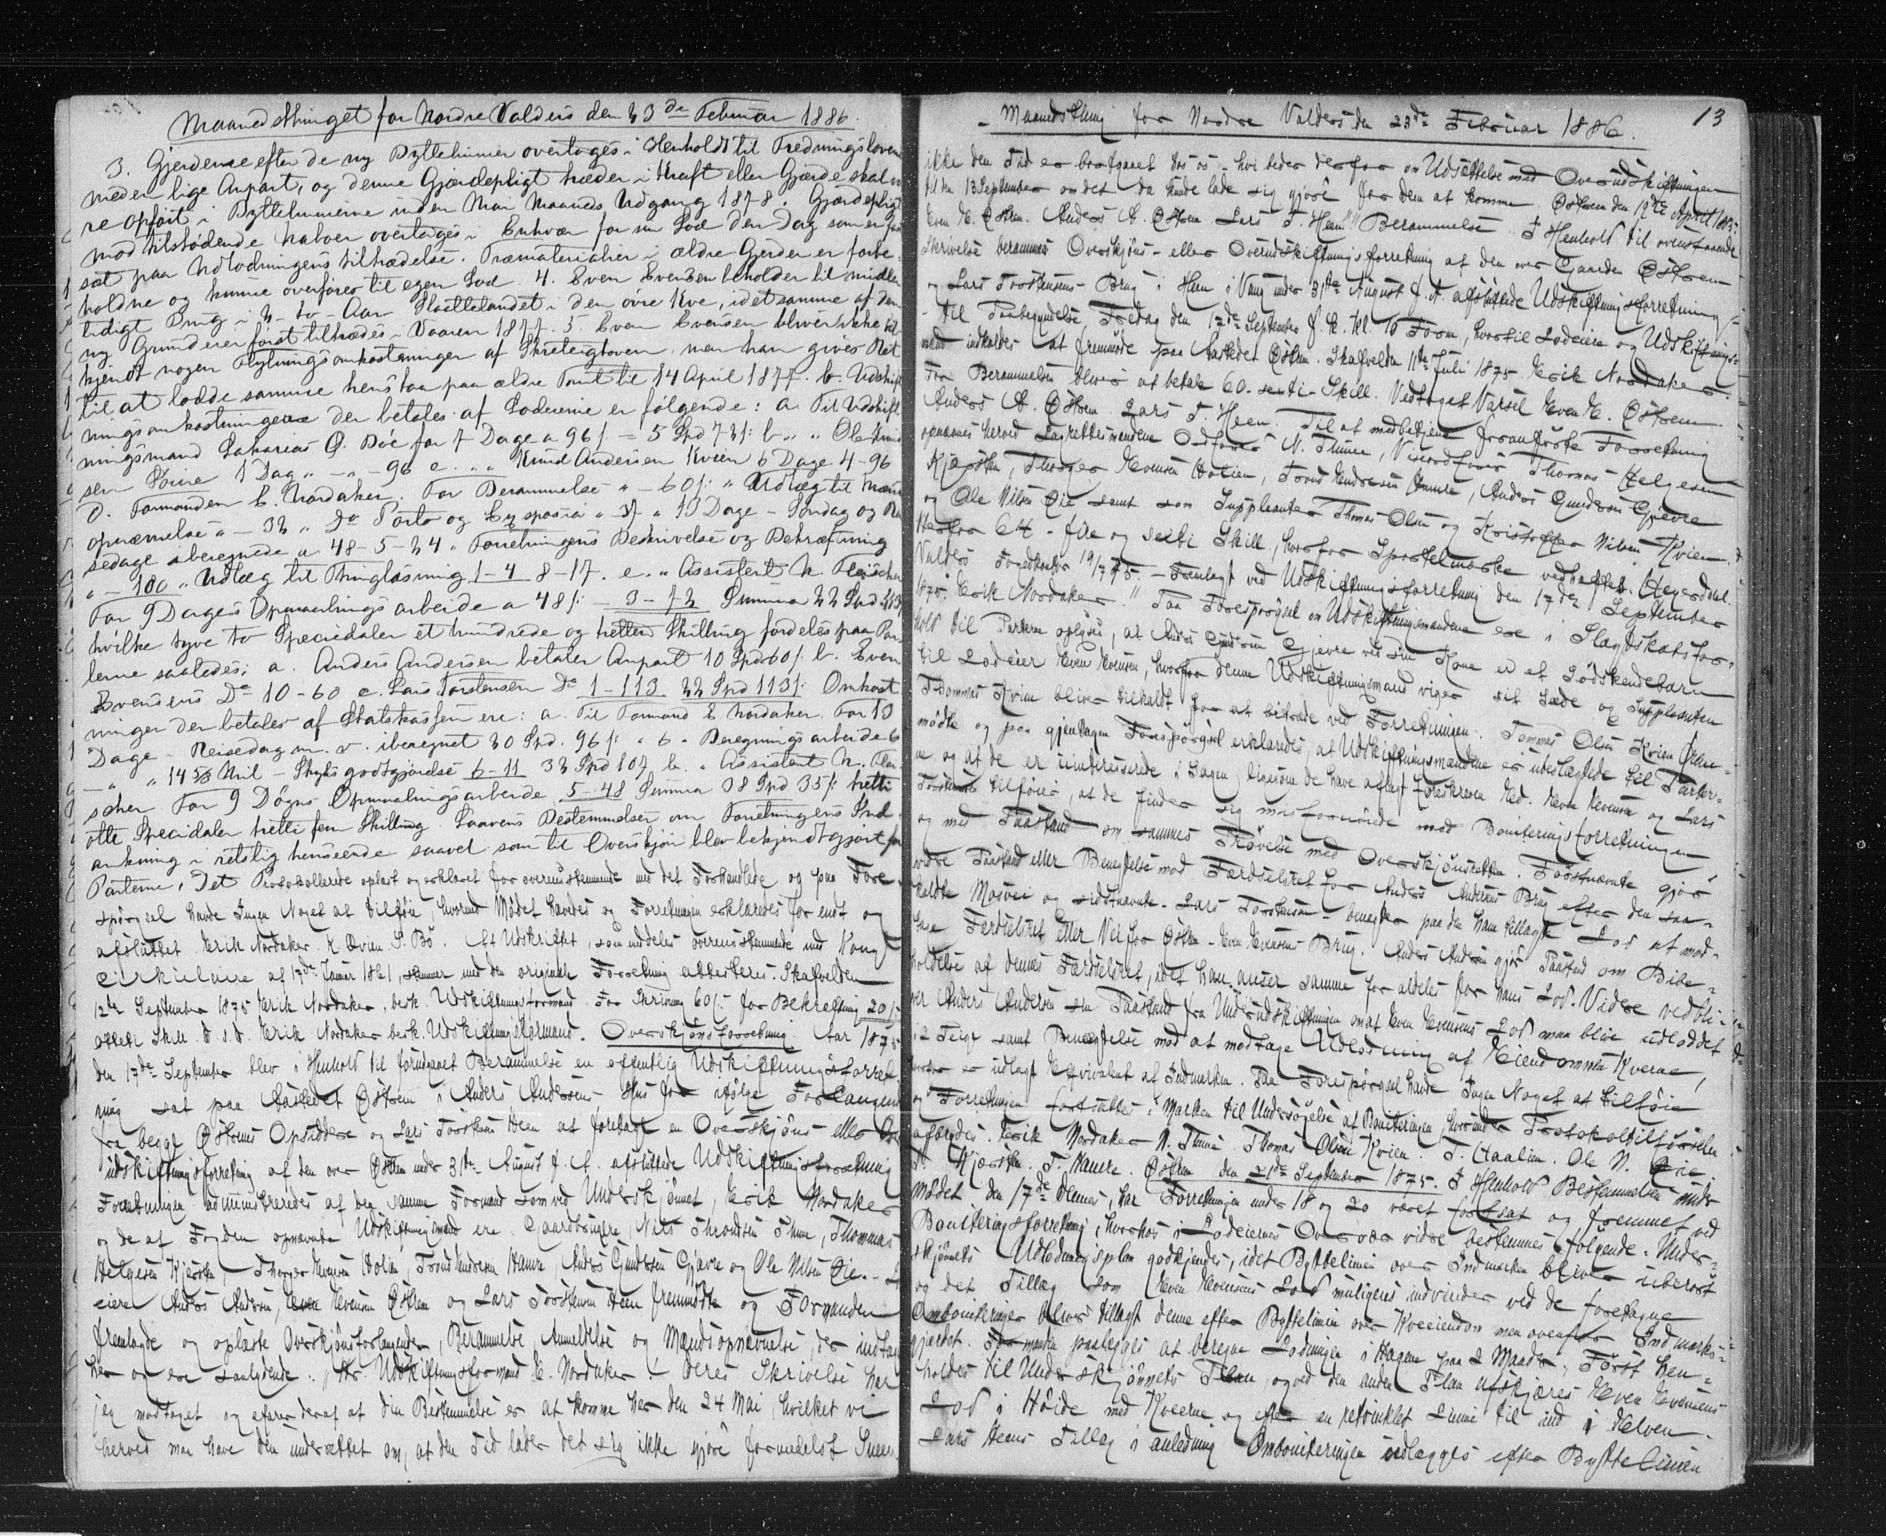 Maanedsthinget for Nordre Valders den 23de Februar 1886.
3. Gjerderne efter de ny Byttelinier overtages i Henhold til Fredningsloven
med en lige Anpart, og denne Gjærdepligt træder i Kraft eller Gjærde skal væ
re opført i Byttelinierne inden Mai Maaneds Udgang 1878. Gjærdepligt
mod tilstødende Naboer overtages i Enhver for sin Lod den Dag som er fast
sat paa Udlodningens tiltrædelse. Træmaterialier i ældre Gjerder er forbe-
holdne og kunne overføres til egen Lod. 4. Even Evensen beholder til midler
tidigt Brug i 2 - to - Aar Slaattelandet i den øvre Kve, idet samme af den
ny Grundeier først tiltrædes Vaaren 1877. 5. Even Evensen bliver ikke til
kjendt nogen Flytningsomkostninger af Skreleigloven, men han gives Ret
til at lade samme henstaa paa ældre Tomt til 14 April 1877. 6. Udskift
ningsomkostningerne der betales af Lodeierne er følgende: a. Til Udskift
ningsmand Sakarias O. Bøe for 7 Dage a 96 ſ = 5 Spd 73 ſ: b. " " Ole Knud
sen Soine 1 Dag " - " - 96 c. " " Knud Andersen Kvien 6 Dage 4-96
d. Formanden E. Nordaker. For Berammelse " - 60 ſ: " Udlæg til Mænds
opnævnelse " - 32 " do Porto og Expositi " 3 ſ " 10 Dage - Søndag og Rei
sedage iberegnede a 48 - 5-24 " Forretningens Beskrivelse og Bekræftning
" - 100 " Udlæg til Thinglæsning 1-4 8-17. e. " Assistent N. Fleischer
For 9 Dages Opmaalingsarbeide a 48 ſ: 3-72 Summa 22 Spd 113 ſ
hvilke tyve to Speciedaler et hundrede og tretten Skilling fordeles paa Par
terne saaledes; a. Anders Andersen betaler Anpart 10 Spd 60 ſ. b. Even
Evensens Do 10-60 c. Lars Torstensen Do 1-113 22 Spd 113 ſ: Omkost
ninger der betales af Statskassen ere: a. Til Formand E. Nordaker. For 10
Dage - Reisedag m. v. iberegnet 30 Spd. 96 ſ: " 6 " Beregningsarbeide 6
- " " 14 5/8 Mil - Skydsgodtgjørelse 6-11 33 Spd 107 b. " Assistent N. Flei-
scher. For 9 Døgns Opmaalingsarbeide 5-48 Summa 38 Spd 35 ſ: tretti
otte Speciedaler tretti fem Skilling. Lovens Bestemmelser om Forretningens Ind-
ankning i retslig henseende saavel som til Overskjøn blev bekjendtgjort for
Parterne. Det Protokollerede oplæst og erklæret for overensstemmende med det Forhandlede og paa Fore
spørgsel havde Ingen Noget at tilføie, hvorved Mødet hævedes og Forretningen erklæredes for endt og
afsluttet. Erik Nordaker. K. Qvien. S. Bø. At Udskriftet, som meddeles overensstemmende med Kongl
Cirkulaire af 17de Januar 1861, stemmer med den originale Forretning attesteres. Skatvelden
12te September 1875 Erik Nordaker, besk. Udskiftningsformand. For Skrivning 60 ſ: for Bekræftning 20 ſ:
otteti Skill. d. s. d. Erik Nordaker besk. Udskiftningsformand. Overskjønsforretning. Aar 1875
den 17de September blev i Henhold til forudgaaet Berammelse en offentlig Udskiftningsforret
ning sat paa Aastedet Østrem i Anders Andersens Hus for ifølge Forlangende
fra begge Østrems Opsiddere og Lars Torstensen Heen at foretage en Overskjøns eller Over
udskiftningsforretning af den over Østrem under 31te August f. A. afsluttede Udskiftningsforretning
Forretningen administreredes af den samme Formand som ved Underskjønnet, Erik Nordaker
og de af Fogden opnævnte Udskiftningsmænd ere Gaardbrugere, Nils Throndsen Thune, Thommas
Helgesen Kjørstn, Thorger Evensen Holien, Trond Endresen Hamre, Anders Gundersen Gjævre og Ole Nilsen Øie. - Lod
eiere Anders Andersen, Even Evensen Østrem og Lars Torstensen Heen fremmødte og Formanden
fremlagde og oplæste Overskjønsforlangende, Berammelse, Anmeldelse og Mændsopnævnelse, der indtages
her og ere saalydende: "Hr. Udskiftningsformand E. Nordaker! Deres Skrivelse har
jeg modtaget og erfarer deraf at din Bestemmelse er at komme her den 24 Mai, hvilket vi
herved maa have dem underrettet om, at den Tid lader det sig ikke gjøre formedelst Sneen
Maanedsthing for Nordre Valders den 23de Februar 1886. 13
ikke den Tid er bortgaaet hos os - hvi beder derfor om Udsættelse med Overudskiftningen
til den 13 September om det da kunde lade sig gjøre for dem at komme. Østrem den 19de April 1875
Even E. Østrem. Anders A. Østrem Lars T. Heen" " Berammelse. I Henhold til ovenstaaende
Skrivelse berammes Overskjøns- eller Overudskiftningsforretning af den over Gaarden Østrem
og Lars Torstensens Brug i Heen i Vang under 31te August f. A. afsluttede Udskiftningsforretning
- til Paabegyndelse Fredag den 17de September d. A. Kl. 10 Form, hvortil Lodeiere og Udskiftnings-
mænd indkaldes at fremmøde paa Aastedet Østrem. Skatvelden 11te Juli 1875 Erik Nordaker.
For Berammelsen bliver at betale 60 - seksti - Skill. Vedtaget Varsel Even E. Østrem
Anders A. Østrem. Lars T. Heen. Til at medbetjene foranførte Forretning
opnævnes herved Lagrettesmændene Ordfører N. Thune, Viceordfører Thomas Helgesen
Kjørstn, Thorger Evensen Holien, Trond Endresen Hamre, Anders Gundersen Gjævre
og Ole Nilsen Øie samt som Supleanter Thomas Olsen og Kristoffer Nilsen Kvien.
Herfor 64 - fire og seksti Skill., hvorfor Sportelmærke vedhæftes.
Valders Fogedkontor 19/7 75. - Fremlagt ved Udskiftningsforretning den 17de September
1875. Erik Nordaker" Paa Forespørgsel om Udskiftningsmændene ere i Slægtskabsfor-
hold til Parterne oplyses, at Anders Gundersen Gjevre ved sin Kone er et Sødskendebarn
til Lodeier Even Evensen, hvorfor denne Udskiftningsmand viger sit Sæde og Suppleanten
Thommas Kvien bliver tilkaldt for at bitræde ved Forretningen. Tommas Olsen Kvien frem-
mødte og paa gjentagen Forespørgsel erklæredes, at Udskiftningsmændene er ubeslægtede til Parter-
ne og at de er uinteresserede i Sagen, ligesom de have aflagt foreskreven Ed. Even Evensen og Lars
Torstensen tilføier, at de finder sig misfornøiede med Boniteringsforretningen
og med Paastand om sammes Prøvelse med Overskjønsretten. Førstnævnte gjør
videre Paastand eller Benegtelse mod Færdselsret for Anders Andersens Brug efter den saa-
kaldte Mosvei og sidstnævnte - Lars Torstensen - benegter paa den ham tillagte Lod at mod-
tage Færdselsret eller Vei for Østrem - Even Evensens Brug. Anders Andersen gjør Paastand om Bibe-
holdelse af dennes Færdselsret, idet han anser samme for aldeles for hans Lod. Videre vedbli-
ver Anders Andersen sin Paastand fra Underudskiftningen om at Even Evensens Lod maa blive udloddet
i 2 Teige samt Benegtelse mod at modtage Udlodning af Eiendommen Kverne,
hvorfor er udlagt Eqvivalent af Indmarken. Paa Forespørgsel havde Ingen Noget at tilføie
og Forretningen fortsattes i Marken til Undersøgelse af Boniteringen, hvorunder Protokoltilførselen
afbrødes. Erik Nordaker N. Thune. Thomas Olsen Kvien. T. Haalien. Ole N. Øie,
T. H. Kjørstn. T. Hamre. Østrem den 21de September 1875. I Henhold Bestemmelsen under
Mødet den 17de dennes, har Forretningen under 18 og 20 været fortsat og fremmet ved
Boniteringsforretning, hvorhos i Lodeiernes Overvær videre bestemmes følgende. Under-
skjønnets Udlodningsplan godkjendes, idet Byttelinien over Indmarken bliver uberørt
og det Tillæg som Even Evensens Lod muligens indvinder ved de foretagne
Omboniteringer bliver tillagt denne efter Byttelinien over Kveeiendom men ovenfor Indmarks-
gjærdet. Formanden paalægges at beregne Lodningen i Hagene paa 2 Maader; Først hen-
holdes til Underskjønnets Plan, og ved den anden Plan afskjæres Even Evensens
Lod i Høide med Kverne og efter en retvinklet Linie til ind i Elven.
Lars Heens Tillæg i anledning Omboniteringen vedlægges efter Byttelinien